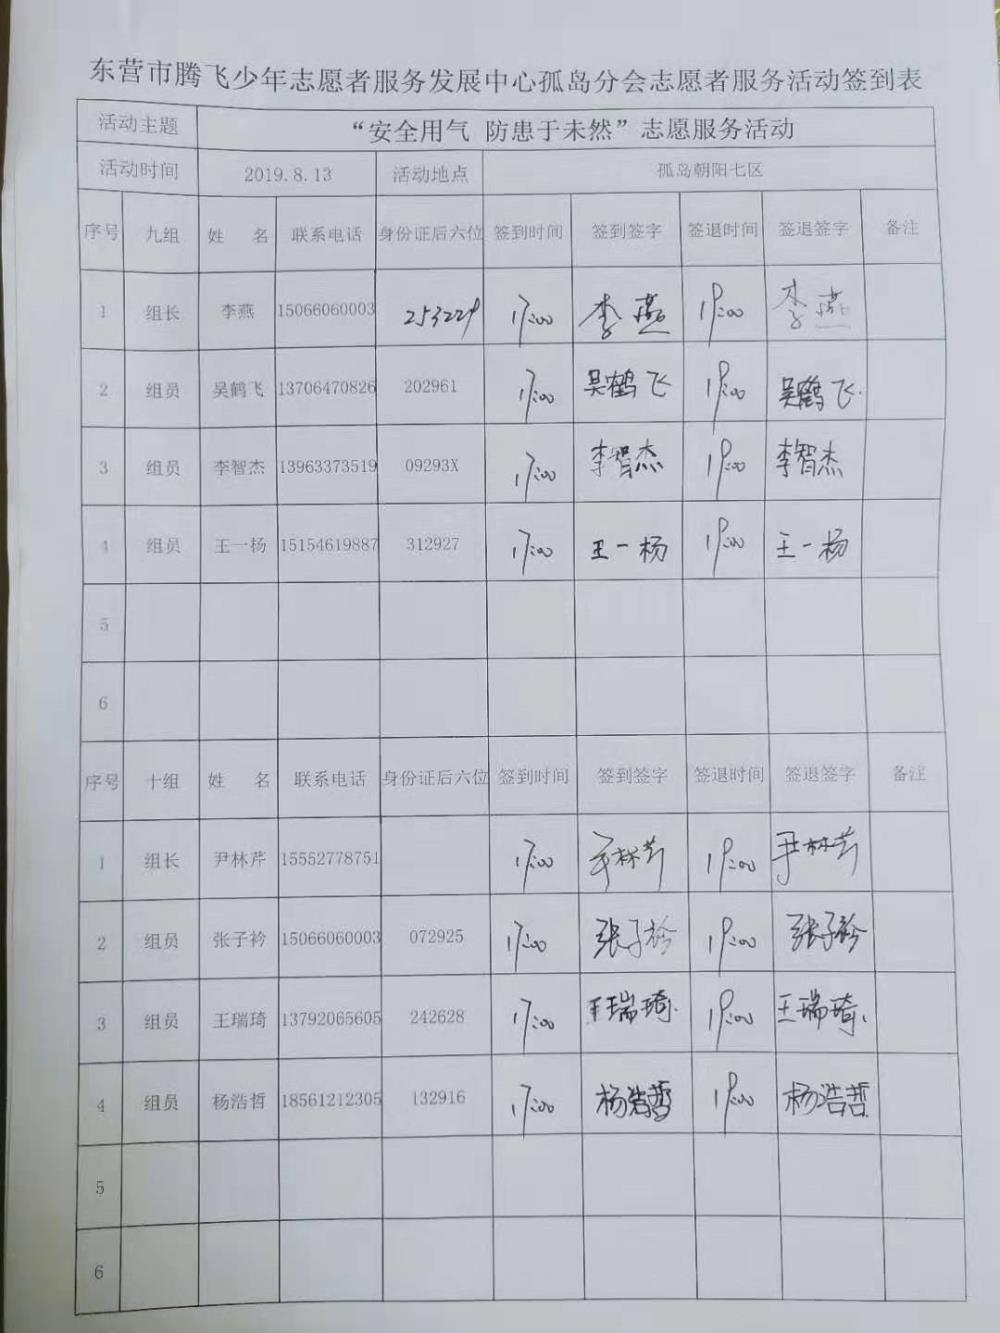 东营市腾飞少年志愿者服务发展中心孤岛分会志愿者服务活动签到表
活动主题 “安全用气 防患于未然”志愿服务活动
活动时间 2019.8.13 活动地点 孤岛朝阳七区
序号 九组 姓 名 联系电话 身份证后六位 签到时间 签到签字 签退时间 签退签字 备注
1 组长 李燕 15066060003 253229 17:00 李燕 19:00 李燕
2 组员 吴鹤飞 13706470826 202961 17:00 吴鹤飞 19:00 吴鹤飞
3 组员 李智杰 13963373519 09293X 17:00 李智杰 19:00 李智杰
4 组员 王一杨 15154619887 312927 17:00 王一杨 19:00 王一杨
5
6
序号 十组 姓 名 联系电话 身份证后六位 签到时间 签到签字 签退时间 签退签字 备注
1 组长 尹林芹 15552778751 17:00 尹林芹 19:00 尹林芹
2 组员 张子衿 15066060003 072925 17:00 张子衿 19:00 张子衿
3 组员 王瑞琦 13792065605 242628 17:00 王瑞琦 19:00 王瑞琦
4 组员 杨浩哲 18561212305 132916 17:00 杨浩哲 19:00 杨浩哲
5
6